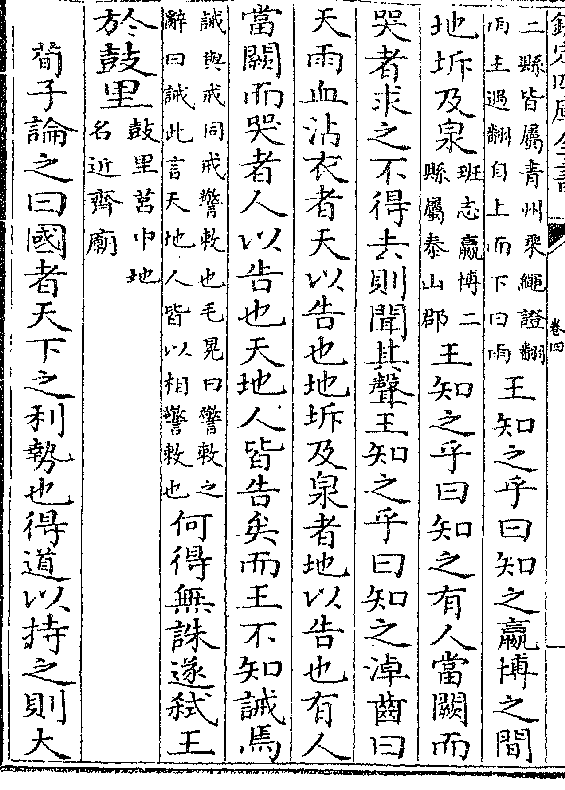 欽定四庫全書
卷四
二縣皆屬青州乘繩證翻
雨主遇翻自上而下曰雨
王知之乎曰知之嬴博之間
地坼及泉
班志嬴博二
縣屬泰山郡
王知之乎曰知之有人當闕而
哭者求之不得去則聞其聲王知之乎曰知之淖齒曰
天雨血沾衣者天以告也地坼及泉者地以告也有人
當闕而哭者人以告也天地人皆告矣而王不知誡焉
誡與戒同戒警敕也毛晃曰警敕之
辭曰誡此言天地人皆以相警敕也
何得無誅遂弑王
於鼓里
鼓里莒中地
名近齊廟
荀子論之曰國者天下之利勢也得道以持之則大